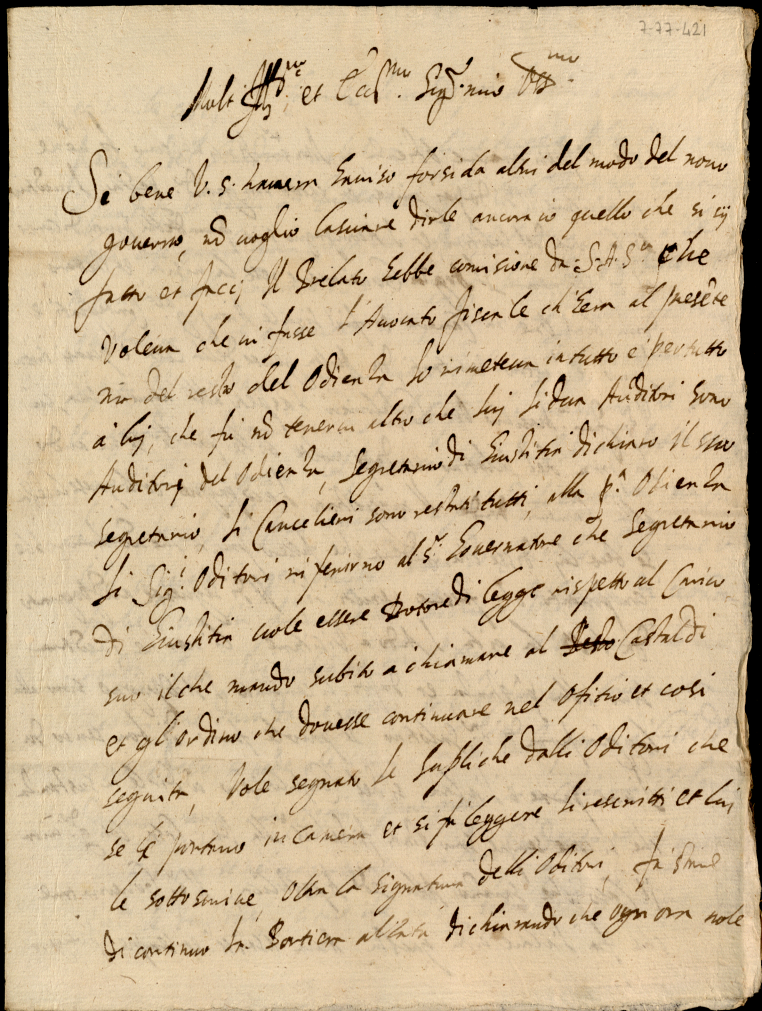 7-77-421
Molt Ill.re et Ecc.mo Sig.r mio Oss.mo
Se bene V. S. havera hauuiso forsi da altri del modo del nouo
gouerno, nõ uoglio lasciare dirle ancora io quello che si sij
fatto et facci, Il Prelato hebbe comissione da S. A. S.ma che
voleua che ui fusse l'Auocato fiscale ch'Era al presẽte
ma del resto del Odienza lo rimeteua in tutto e per tutto
a luj, che fu nõ teneua altro che luj li dua Auditori sono
Auditorj del Odienza, Segretario di Giustitia dichiaro il suo
segretario, li Cancelieri sono restati tutti, alla p.a Odienza
li Sig.i Oditori riferirno al S.r Gouernatore che Segretario
di Giustitia uole essere Dotore di legge rispetto al Carico
suo il che mando subito a chiamare al Castaldi
et gl'ordino che douesse continuare nel ofitio et cosi
seguita, Vole segnato le supliche dalli Oditori che
se le portano in Camera et si fa leggere li rescritti et lui
le sottoscriue, oltra la signatura delli Oditori, fa stare
di continuo la Portiera alzata dichiarando che ogn ora uole